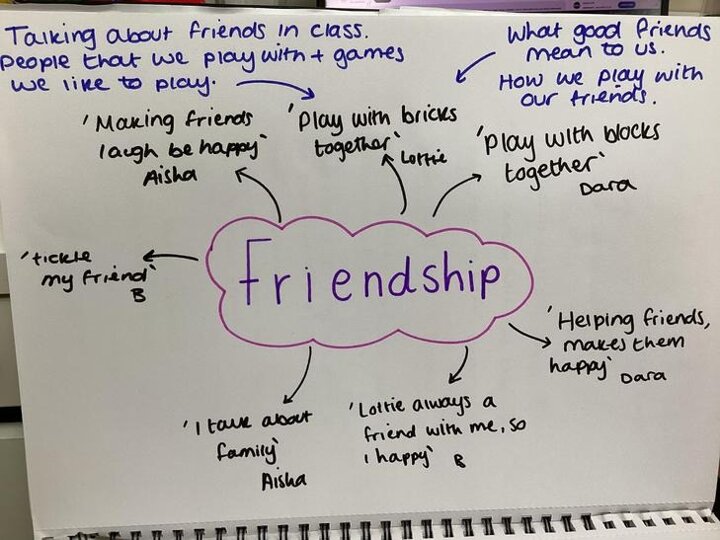 Talking about friends in class.
People that we play with + games
we like to play.
What good friends
mean to us.
How we play with
our friends.
'Making friends
laugh be happy'
Aisha
'Play with bricks
together'
Lottie
'Play with blocks
together'
Dara
'tickle
my friend'
B
Friendship
'Helping friends,
makes them
happy'
Dara
'I talk about
family'
Aisha
'Lottie always a
friend with me, so
I happy'
B